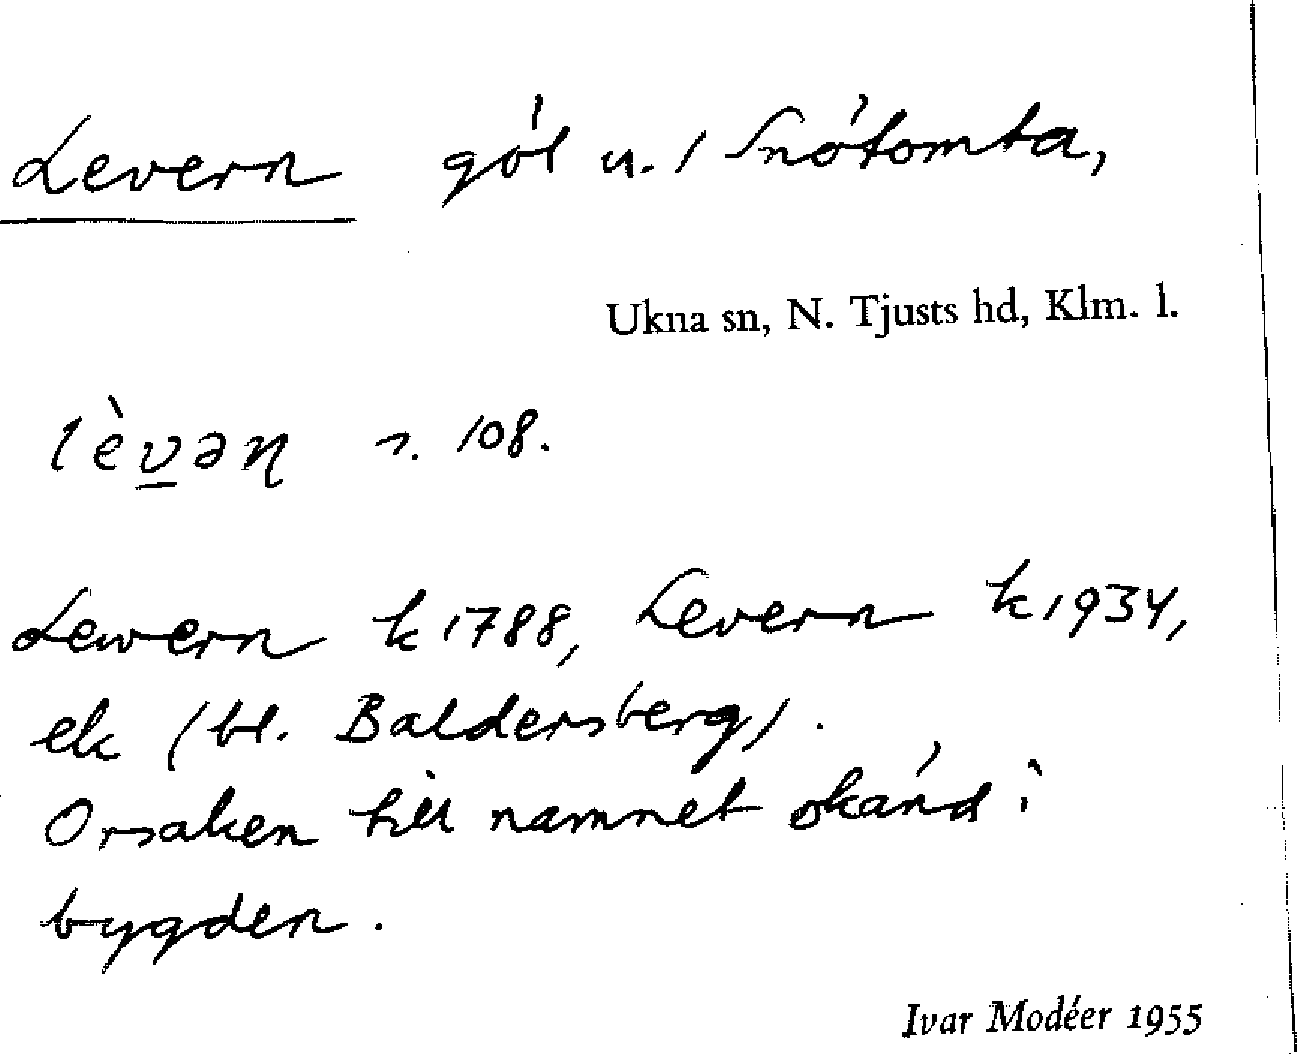 Levern göl u. / Snötomta,
Ukna sn, N. Tjusts hd, Klm. l.
lèv̲əη s. 108.
Lewern k 1788, Levern k 1934,
ek (bl. Baldersberg).
Orsaken till namnet okänd i
bygden.
Ivar Modéer 1955